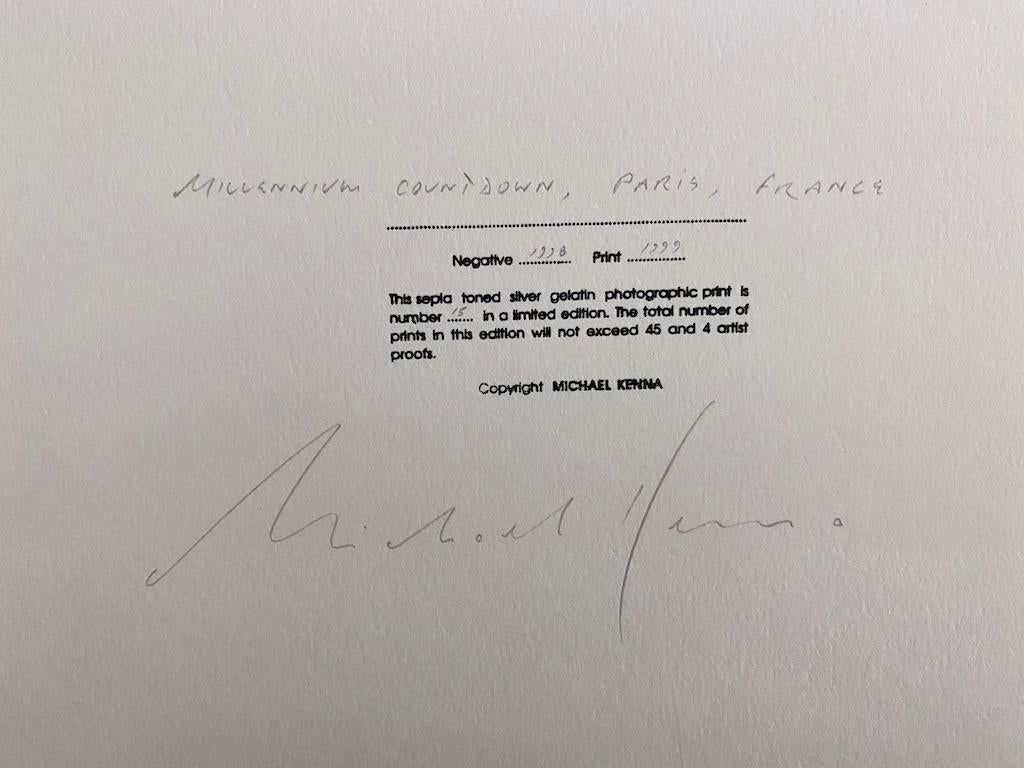 MILLENNIUM COUNTDOWN, PARIS, FRANCE
Negative 1998 Print 1999
This sepia toned silver gelatin photographic print is
number 15 in a limited edition. The total number of
prints in this edition will not exceed 45 and 4 artist
proofs.
Copyright MICHAEL KENNA
Michael Kenna